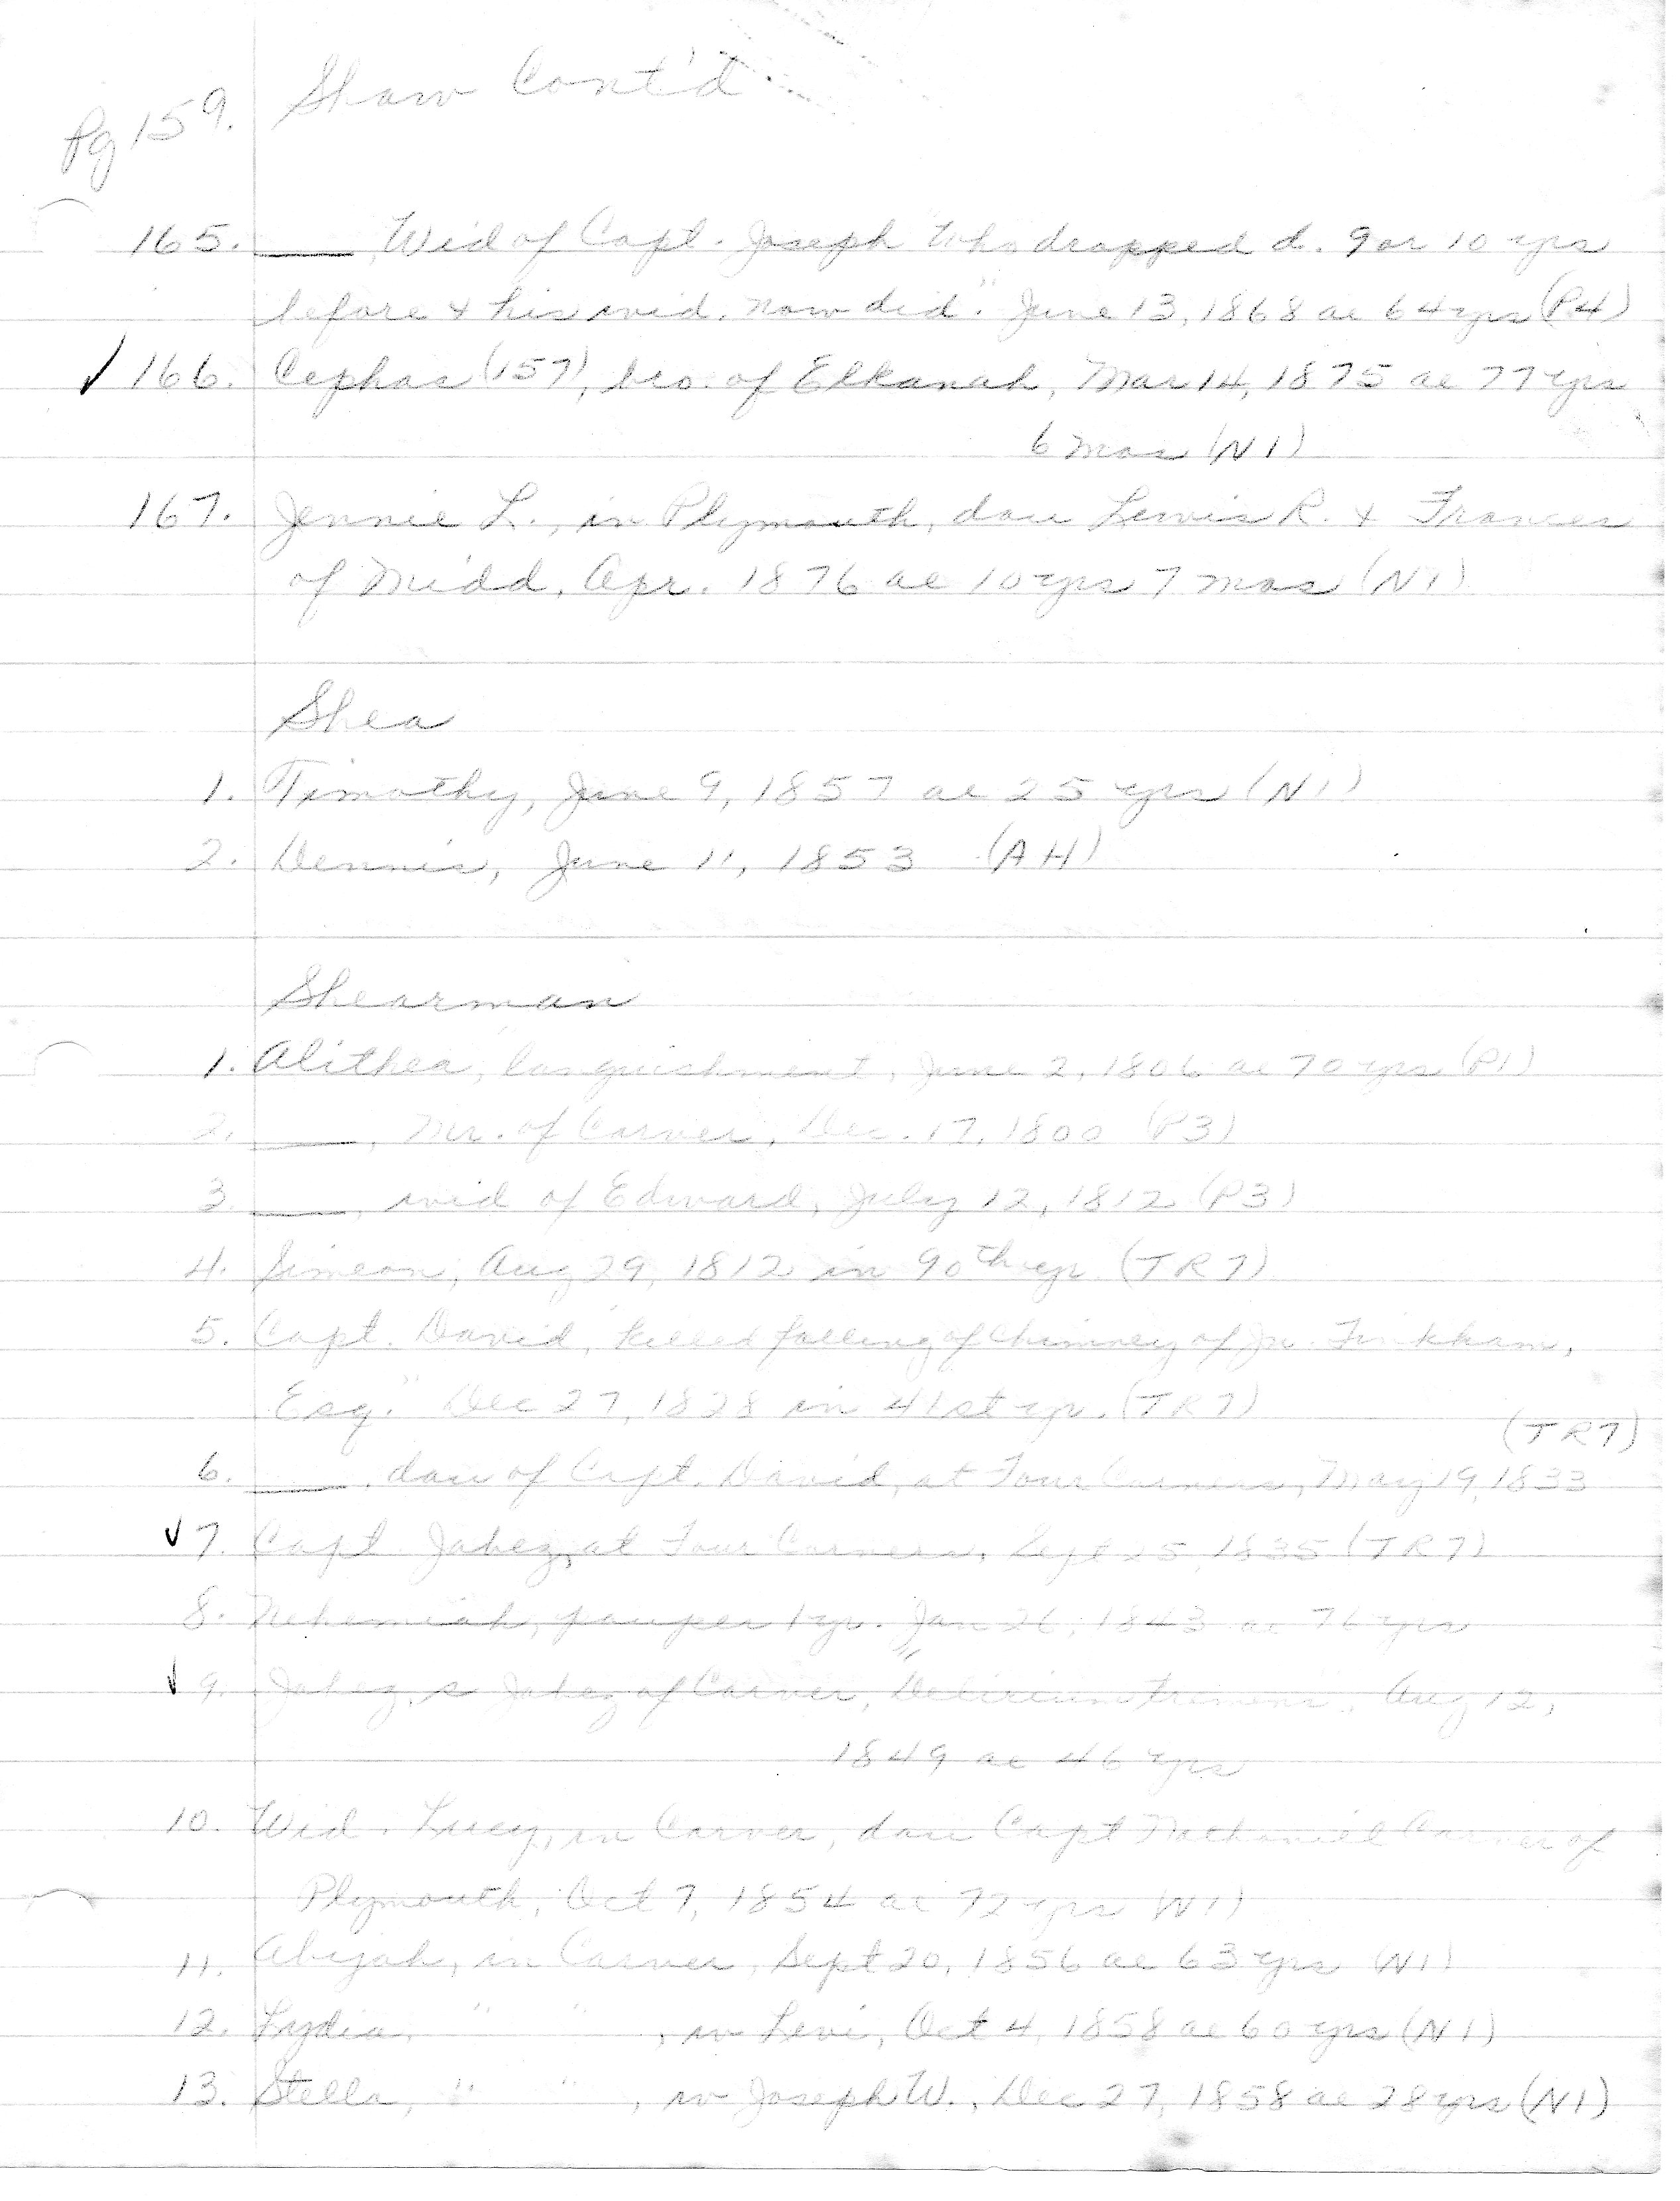 Pg 159. Shaw Cont'd
165. ____, Wid of Capt. Joseph "who dropped d. 9 or 10 yrs
before & his wid. now did." June 13, 1868 ae 64 yrs (P4)
✓ 166. Cephas (157), bro. of Elkanah, Mar 14, 1875 ae 77 yrs
6 mos (N1)
167. Jennie L., in Plymouth, dau Lewis R. & Frances
of Midd, Apr. 1876 ae 10 yrs 7 mos (N1)
Shea
1. Timothy, June 9, 1857 ae 25 yrs (N1)
2. Dennis, June 11, 1853 (AH)
Shearman
1. Alithea, languishment, June 2, 1806 ae 70 yrs (P1)
2. ____, Mr. of Carver, Dec. 17, 1800 (P3)
3. ____, wid of Edward, July 12, 1812 (P3)
4. Simeon, Aug 29, 1812 in 90th yr (TR7)
5. Capt. David, killed falling of Chimney of Jn. Tinkham,
Esq." Dec 27, 1828 in 41st yr. (TR7)
(TR7)
6. ____, dau of Capt. David, at Four Corners, May 19, 1833
✓ 7. Capt Jabez, at Four Corners, Sept 25, 1835 (TR7)
8. Nehemiah, pauper 1 yr. Jan 26, 1843 ae 76 yrs
✓ 9. Jabez, s Jabez of Carver, "Delirium Trimens", Aug 12,
1849 ae 46 yrs
10. Wid. Lucy, in Carver, dau Capt Nathaniel Carver of
Plymouth, Oct 7, 1854 ae 72 yrs (N1)
11. Abijah, in Carver, Sept 20, 1856 ae 63 yrs (N1)
12. Lydia, " " , w Levi, Oct 4, 1858 ae 60 yrs (N1)
13. Stella, " " , w Joseph W., Dec 27, 1858 ae 28 yrs (N1)